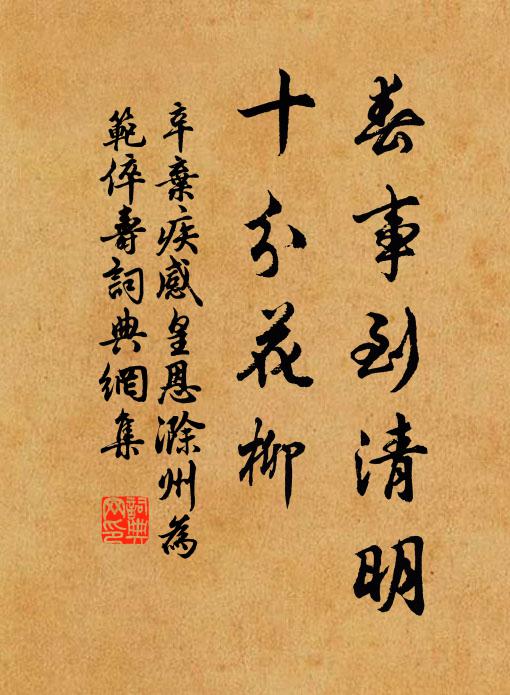 春事到清明
十分花柳
辛棄疾感皇恩滁州為
範倅壽詞典網集
詞典網印